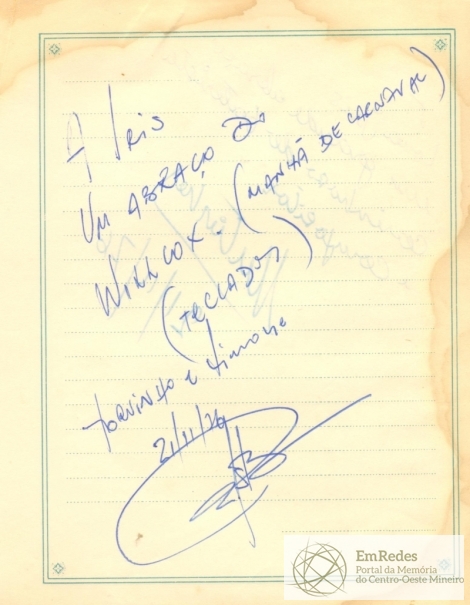 A Iris
Um ABRAÇO DO
WILLCOX. (MANHÃ DE CARNAVAL)
(TECLADOS)
Torninho e Simone
21/11/76
EmRedes
Portal da Memória
do Centro-Oeste Mineiro